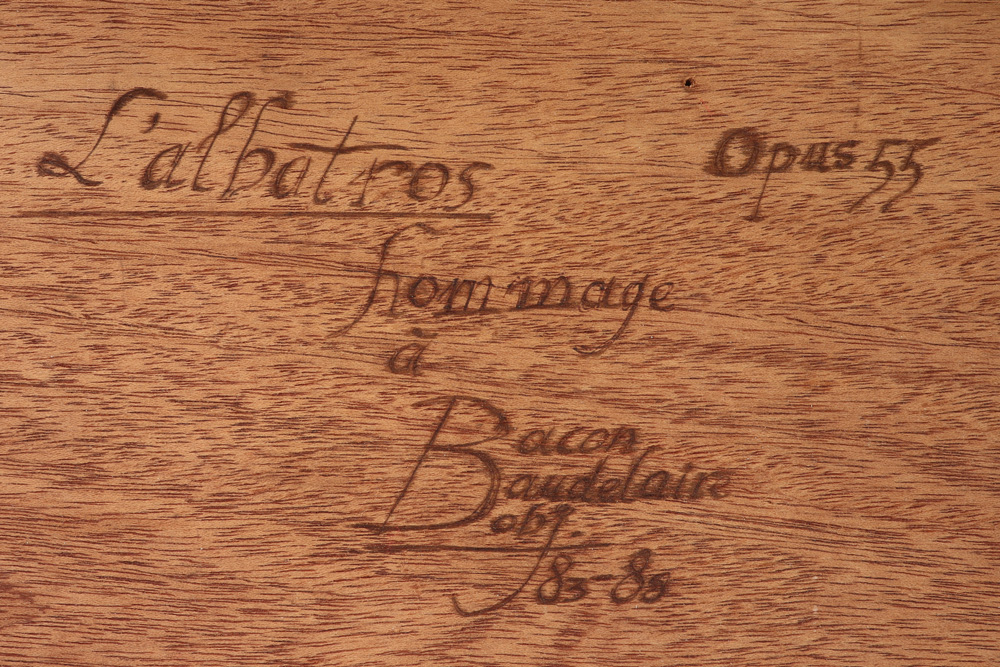 L'albatros
Opus 55
hommage
à
Bacon
Baudelaire
obj.